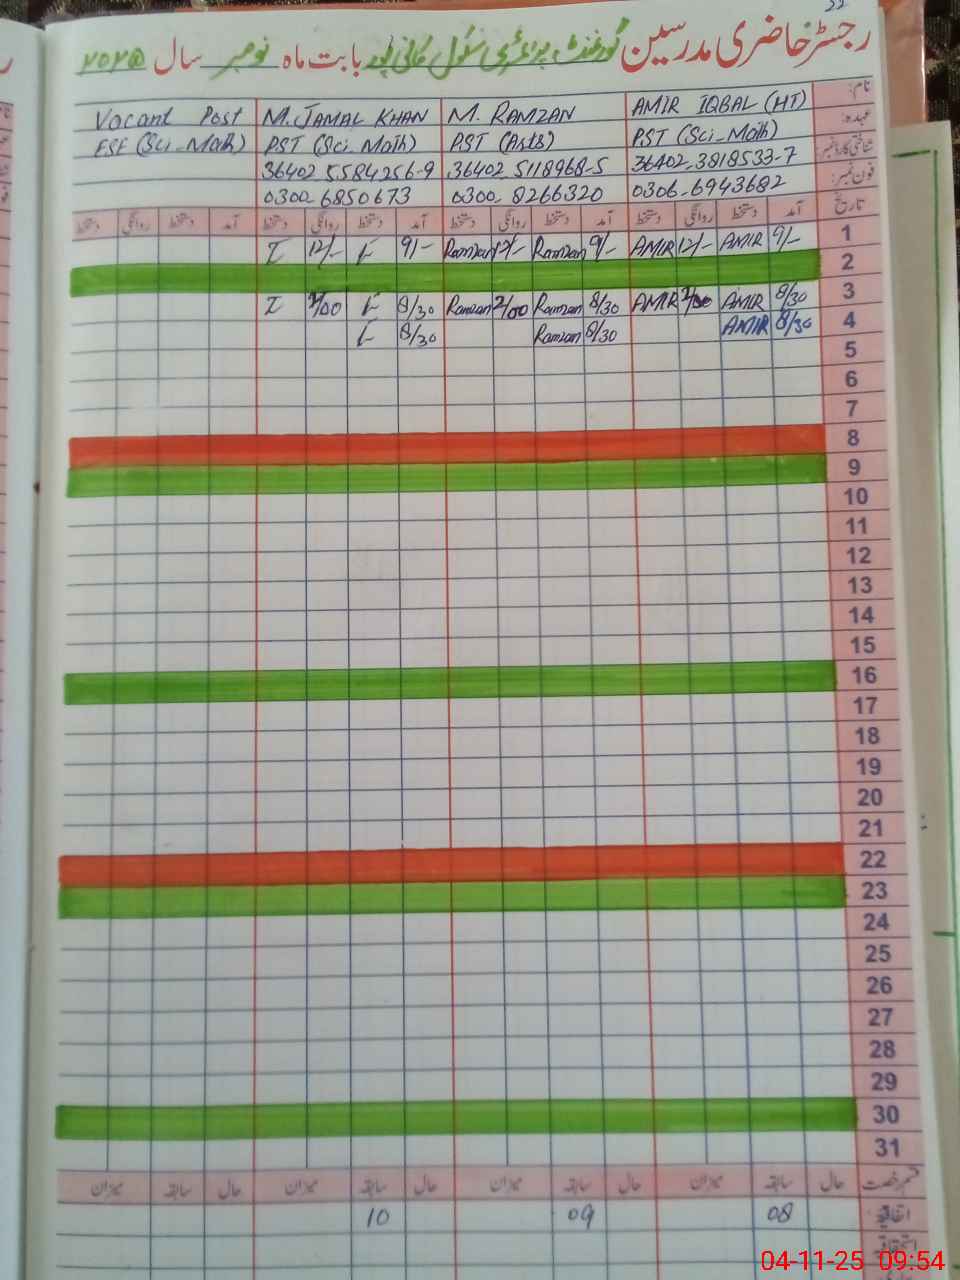 رجسٹر حاضری مدرسین گورنمنٹ پرائمری سکول بابت ماہ نومبر سال ۲۰۲۵
نام:
AMIR IQBAL (HT)
M. RAMZAN
M. JAMAL KHAN
Vacant Post
عہدہ:
PST (Sci-Math)
PST (Arts)
PST (Sci-Math)
ESE (Sci-Math)
شناختی کارڈ نمبر:
36402-3818533-7
36402-5118968-5
36402-5584256-9
فون نمبر:
0306-6943682
0300-8266320
0300-6850673
تاریخ آمد دستخط روانگی دستخط آمد دستخط روانگی دستخط آمد دستخط روانگی دستخط آمد دستخط روانگی دستخط
1 9/- AMIR 12/- AMIR 9/- Ramzan 12/- Ramzan 9/- 12/-
2
3 8/30 AMIR 2/00 AMIR 8/30 Ramzan 2/00 Ramzan 8/30 2/00
4 8/30 AMIR 8/30 Ramzan 8/30
5
6
7
8
9
10
11
12
13
14
15
16
17
18
19
20
21
22
23
24
25
26
27
28
29
30
31
قسم رخصت حال سابقہ میزان حال سابقہ میزان حال سابقہ میزان حال سابقہ میزان
اتفاقیہ: 08 09 10
استحقاقیہ
04-11-25 09:54